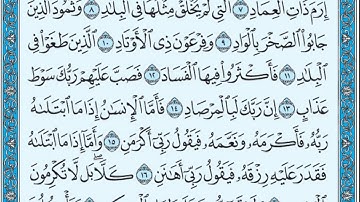 إِرَمَ ذَاتِ ٱلْعِمَادِ ٧ ٱلَّتِي لَمْ يُخْلَقْ مِثْلُهَا فِي ٱلْبِلَٰدِ ٨ وَثَمُودَ ٱلَّذِينَ
جَابُوا۟ ٱلصَّخْرَ بِٱلْوَادِ ٩ وَفِرْعَوْنَ ذِي ٱلْأَوْتَادِ ١٠ ٱلَّذِينَ طَغَوْا۟ فِي
ٱلْبِلَٰدِ ١١ فَأَكْثَرُوا۟ فِيهَا ٱلْفَسَادَ ١٢ فَصَبَّ عَلَيْهِمْ رَبُّكَ سَوْطَ
عَذَابٍ ١٣ إِنَّ رَبَّكَ لَبِٱلْمِرْصَادِ ١٤ فَأَمَّا ٱلْإِنسَٰنُ إِذَا مَا ٱبْتَلَىٰهُ
رَبُّهُۥ فَأَكْرَمَهُۥ وَنَعَّمَهُۥ فَيَقُولُ رَبِّيٓ أَكْرَمَنِ ١٥ وَأَمَّآ إِذَا مَا ٱبْتَلَىٰهُ
فَقَدَرَ عَلَيْهِ رِزْقَهُۥ فَيَقُولُ رَبِّيٓ أَهَٰنَنِ ١٦ كَلَّا ۖ بَل لَّا تُكْرِمُونَ